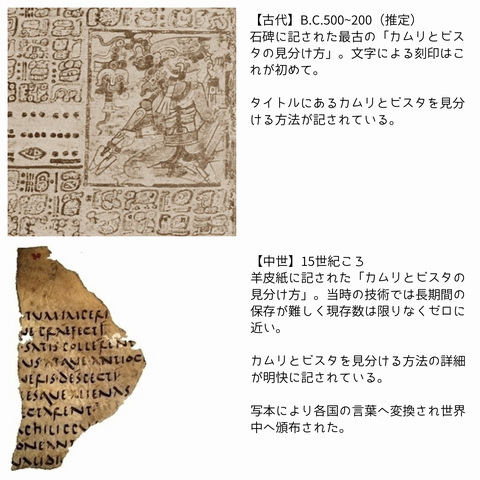 【古代】B.C.500~200（推定）
石碑に記された最古の「カムリとビス
タの見分け方」。文字による刻印はこ
れが初めて。
タイトルにあるカムリとビスタを見分
ける方法が記されている。
【中世】15世紀ころ
羊皮紙に記された「カムリとビスタの
見分け方」。当時の技術では長期間の
保存が難しく現存数は限りなくゼロに
近い。
カムリとビスタを見分ける方法の詳細
が明快に記されている。
写本により各国の言葉へ変換され世界
中へ頒布された。